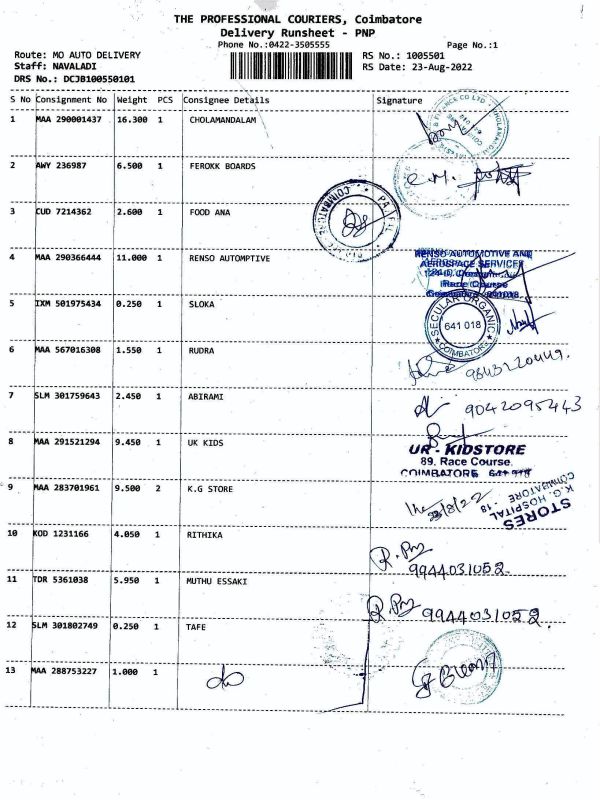 THE PROFESSIONAL COURIERS, Coimbatore
Delivery Runsheet - PNP
Phone No.:0422-3505555
Page No.:1
Route: MO AUTO DELIVERY
RS No.: 1005501
Staff: NAVALADI
RS Date: 23-Aug-2022
DRS No.: DCJB100550101
S No Consignment No Weight PCS Consignee Details Signature
1 MAA 290001437 16.300 1 CHOLAMANDALAM
2 AWY 236987 6.500 1 FEROKK BOARDS
3 CUD 7214362 2.600 1 FOOD ANA
4 MAA 290366444 11.000 1 RENSO AUTOMPTIVE
RENSO AUTOMOTIVE AND
AEROSPACE SERVICES
Race Course
5 IXM 501975434 0.250 1 SLOKA
SECULAR ORGANIC
641 018
COIMBATORE
6 MAA 567016308 1.550 1 RUDRA
9843220449.
7 SLM 301759643 2.450 1 ABIRAMI
9042095443
8 MAA 291521294 9.450 1 UK KIDS
UR - KIDSTORE
89, Race Course
COIMBATORE
9 MAA 283701961 9.500 2 K.G STORE
STORES
K.G. HOSPITAL
COIMBATORE - 18
10 KOD 1231166 4.050 1 RITHIKA
9944031052.
11 TDR 5361038 5.950 1 MUTHU ESSAKI
9944031052.
12 SLM 301802749 0.250 1 TAFE
13 MAA 288753227 1.000 1